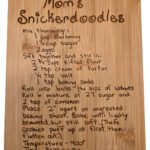 Mom's
Snickerdoodles
Mix thoroughly:
1 cup shortening
1 ½ cup sugar
2 eggs
Sift together and stir in:
2 ¾ cups sifted flour
2 tsp. cream of tartar
1 tsp. baking soda
¼ tsp salt
Roll into balls the size of walnuts
Roll in mixture of 2 T sugar and
2 tsp of cinnamon
Place 2" apart on ungreased
baking sheet. Bake until lightly
browned but still soft. (These
cookies puff up at first then
flatten out)
Temperature - 400°